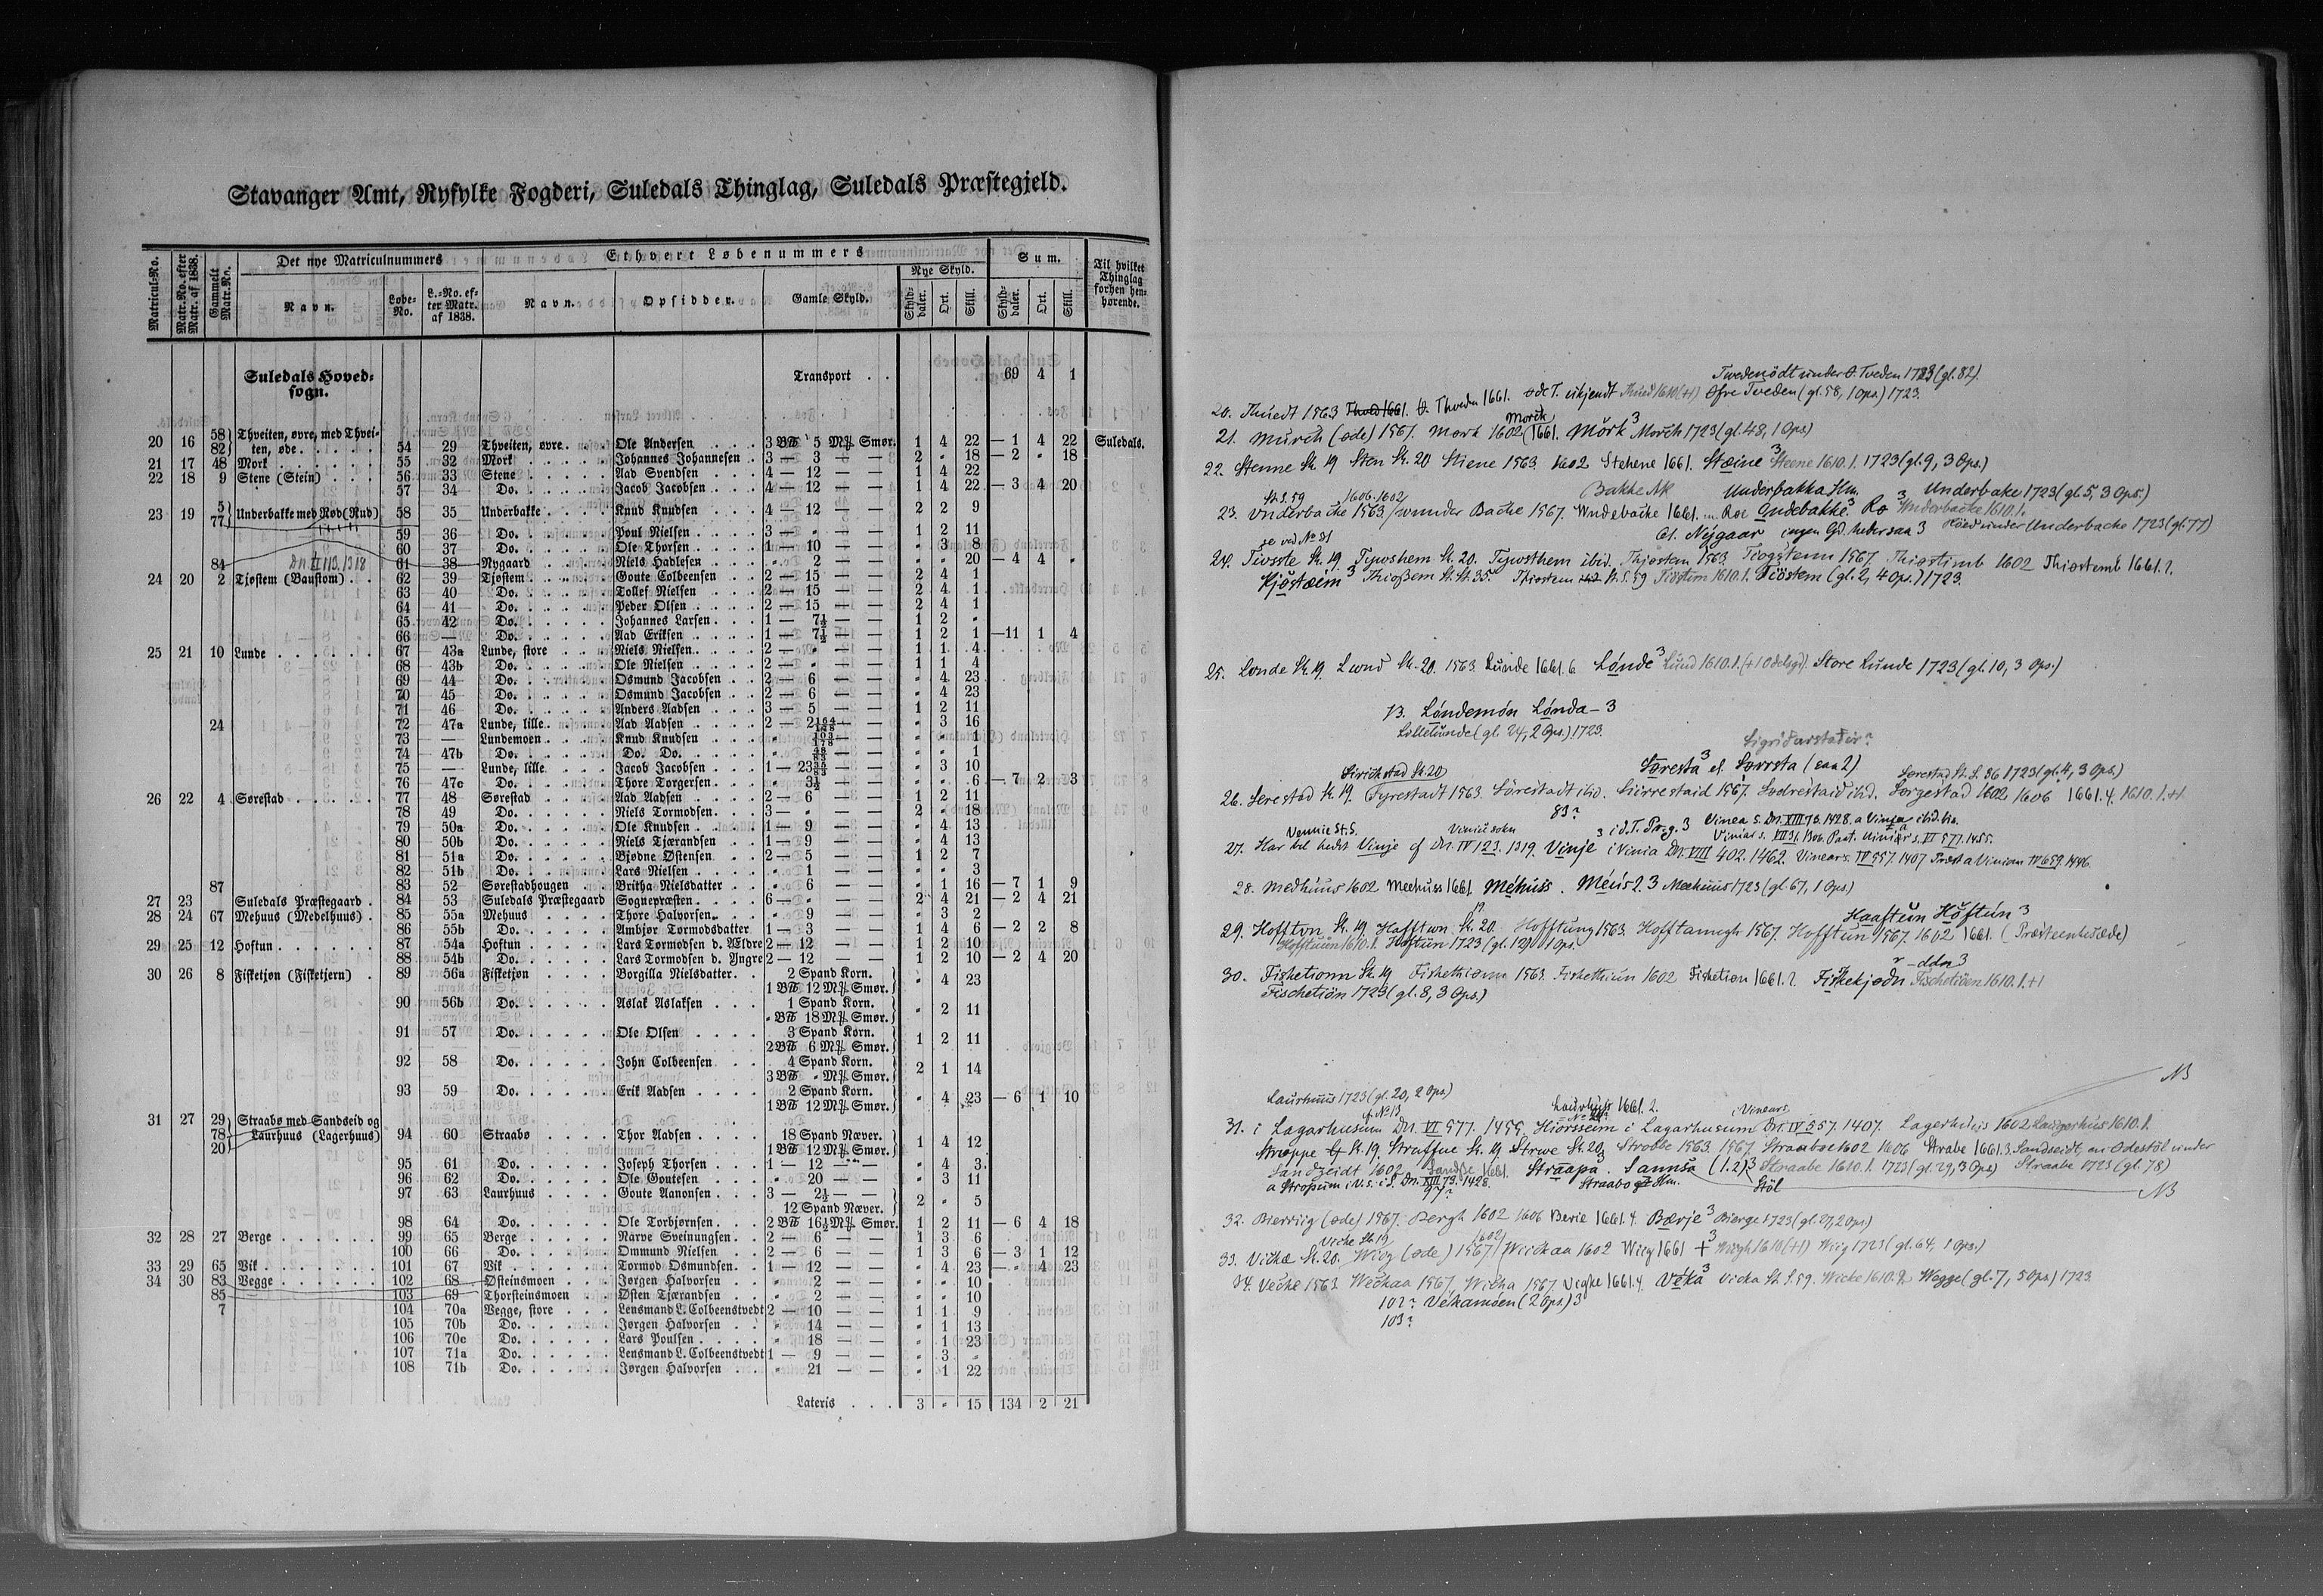 Stavanger Amt, Ryfylke Fogderi, Suledals Thinglag, Suledals Præstegjeld.
Matricul-No. Matr.-No. efter Matr. af 1838. Gammelt Matr.-No. Det nye Matriculnummers Ethvert Løbenummers Sum. Til hvilket Thinglag forhen henhørende.
Navn. Løbe-No. L.-No. efter Matr. af 1838. Navn. Opsidder. Gamle Skyld. Nye Skyld. Skylddaler. Ort. Skill. Skylddaler. Ort. Skill.
Suledals Hovedsogn.
Transport . . 69 4 1
20 16 58 82 Thveiten, øvre, med Thveiten, øde 54 29 Thveiten, øvre Ole Andersen 3 BPd 5 Mk Smør. 1 4 22 — 1 4 22 Suledals.
21 17 48 Mork 55 32 Mork Johannes Johannesen 3 — 3 — — 2 " 18 — 2 " 18
22 18 9 Stene (Stein) 56 33 Stene Aad Svendsen 4 — 12 — — 1 4 22
57 34 Do. Jacob Jacobsen 4 — 12 — — 1 4 22 — 3 4 20
23 19 5 77 Underbakke med Rød (Rud) 58 35 Underbakke Knud Knudsen 4 — 12 — — 2 2 9
59 36 Do. Poul Nielsen 3 — " — — 1 2 11
60 37 Do. Ole Thorsen 1 — 10 — — " 3 8
84 Dn. II 113. 1318 61 38 Nygaard Niels Hadlesen " 2 — — " " 20 — 4 4 "
24 20 2 Tjøstem (Baustom) 62 39 Tjøstem Goute Colbeensen 2 — 15 — — 2 4 1
63 40 Do. Tollef Nielsen 2 — 15 — — 2 4 1
64 41 Do. Peder Olsen 2 — 15 — — 2 4 1
65 42 Do. Johannes Larsen 1 — 7½ — — 1 2 "
66 — Do. Aad Eriksen 1 — 7½ — — 1 2 1 — 11 1 4
25 21 10 Lunde 67 43a Lunde, store Niels Nielsen 2 — " — — 1 1 4
68 43b Do. Ole Nielsen 2 — " — — 1 1 4
69 44 Do. Osmund Jacobsen 2 — 6 — — " 4 23
70 45 Do. Osmund Jacobsen 2 — 6 — — " 4 23
71 46 Do. Anders Aadsen 3 — 5 — — 1 2 11
24 72 47a Lunde, lille Aad Aadsen 2 — 2 — — " 3 16
73 — Lundemoen Knud Knudsen " — — " " 1
74 47b Do. Do. Do. " — — " " 1
75 — Lunde, lille Jacob Jacobsen 1 — 23 — — " 3 10
76 47c Do. Thore Torgersen " 3½ — — " " 6 — 7 2 3
26 22 4 Sørestad 77 48 Sørestad Aad Aadsen 2 — 6 — — 1 2 11
78 49 Do. Niels Tormodsen 3 — " — — 2 " 18
79 50a Do. Ole Knudsen 1 — 9 — — " 4 13
80 50b Do. Niels Tjærandsen 1 — 9 — — " 4 13
81 51a Do. Bjødne Østensen 2 — 5 — — 1 2 7
82 51b Do. Lars Nielsen " 1 — — " " 3
87 83 52 Sørestadhougen Britha Nielsdatter " 6 — — " 1 16 — 7 1 9
27 23 Suledals Præstegaard 84 53 Suledals Præstegaard Sognepræsten 6 — " — — 2 4 21 — 2 4 21
28 24 67 Mehuus (Medelhuus) 85 55a Mehuus Thore Halvorsen " 9 — — " 3 2
86 55b Do. Ambjør Tormodsdatter 1 — 3 — — 1 4 6 — 2 2 8
29 25 12 Hoftun 87 54a Hoftun Lars Tormodsen d. Ældre 2 — 12 — — 1 2 10
88 54b Do. Lars Tormodsen d. Yngre 2 — 12 — — 1 2 10 — 2 4 20
30 26 8 Fisketjøn (Fisketjern) 89 56a Fisketjøn Borgilla Nielsdatter 2 Spand Korn. 1 BPd 12 Mk Smør. " 4 23
90 56b Do. Aslak Aslaksen 1 Spand Korn. " BPd 18 Mk Smør. " 2 11
91 57 Do. Ole Olsen 3 Spand Korn. 2 BPd 6 Mk Smør. 1 2 11
92 58 Do. John Colbeensen 4 Spand Korn. 3 BPd " Mk Smør. 2 1 14
93 59 Do. Erik Aadsen 2 Spand Korn. 1 BPd 12 Mk Smør. " 4 23 — 6 1 10
31 27 29 78 20 Straabø med Sandseid og Laurhuus (Lagerhuus) 94 60 Straabø Thor Aadsen 18 Spand Næver. 1 BPd 12 Mk Smør. 1 4 12
95 61 Do. Joseph Thorsen 1 — 12 — — " 4 3
96 62 Do. Ole Goutesen " 20 — — " 3 11
97 63 Laurhuus Goute Aanonsen 3 — 2½ — — 12 Spand Næver. 2 " 5
98 64 Do. Ole Torbjørnsen 2 BPd 16½ Mk Smør. 1 2 11 — 6 4 18
32 28 27 Berge 99 65 Berge Narve Sveinungsen 2 — 6 — — 1 3 6
100 66 Do. Ommund Nielsen 2 — 6 — — 1 3 6 — 3 1 12
33 29 65 Vik 101 67 Vik Tormod Osmundsen 1 — 12 — — " 4 23 — " 4 23
34 30 83 Vegge 102 68 Østeinsmoen Jørgen Halvorsen " 2 — — " " 10
85 103 69 Thorsteinsmoen Østen Tjærandsen " 2 — — " " 10
7 104 70a Vegge, store Lensmand L. Colbeenstvedt 2 — 10 — — 1 1 9
105 70b Do. Jørgen Halvorsen " 14 — — " 1 13
106 70c Do. Lars Poulsen " 18 — — " 1 23
107 71a Do. Lensmand L. Colbeenstvedt 1 — 9 — — " 3 "
108 71b Do. Jørgen Halvorsen " 21 — — " 1 22
Lateris . . . 3 " 15 134 2 21
Twedenödt under O. Tveden 1723 (gl. 82).
20. Thuedt 1563 O. Thveden 1661. ode T. ukjendt Thued 1610 (+1) Øfre Tveden (gl. 58, 1 Ops.) 1723.
Morck
21. Murch (øde) 1567. Mork 1602 1661. Mörk 3 Morch 1723 (gl. 48, 1 Ops)
22. Stenne St. 19 Sten St. 20 Stiene 1563. 1602 Stehene 1661. Stæine 3 Steene 1610.1. 1723 (gl. 9, 3 Ops.)
St. S. 59 1606. 1602 Bakke NK Underbakka Hm. Underbake 1723 (gl. 5, 3 Ops.)
23. Vnderbache 1563 wunder Bache 1567. Wndebacke 1661. m. Roe Undebakke 3 Ro Wnderbacke 1610.1.
61. Nêjgaar ingen Gd. heder saa 3 Röed under Underbacke 1723 (gl. 77)
se ved No 31
24. Tiosste St. 19. Tywshem St. 20. Tywsthem ibid. Thjostem 1563. Tiogstenn 1567. Thiostimb 1602 Thiostemb 1661.2.
Kjøstæim 3 Thioszem St. St. 35. Thiostem St. S. 59 Tiostem 1610.1. Tiöstem (gl. 2, 4 Ops.) 1723.
25. Londe St. 19 Lund St. 20. 1563 Lunde 1661.6 Lónde 3 Lund 1610.1. (+1 ödelgd). Store Lunde 1723 (gl. 10, 3 Ops.)
73. Lóndemón Lónda- 3
Lillelunde (gl. 24, 2 Ops.) 1723.
Sigridarstader?
Sirichstad St. 20 Sørestà 3 el. Sørrsta (eaa 2) Sørestad St. S. 36 1723 (gl. 4, 3 Ops.)
26. Serestad St. 19. Syrestadt 1563. Sörestadt ibid. Siørrestaid 1567. Sodrestaid ibid. Sorgestad 1602 1606 1661.4. 1610.1.+1.
83?
Vennie St. S. Viniusokn 3 i d. T. Pr. g. 3 Vinea s. Dn. XIII 73. 1428. a Vinea ibid. bis.
27. Har vel hedt Vinje cf Dn. IV 123. 1319. Vinje i Vinia Dn. VIII 402. 1462. Vinear s. IV 557. 1407 Præst a Vinion IV 659. 1446.
28. Medhuus 1602 Meehuss 1661. Méhuss. Méús 2. 3 Meehuus 1723 (gl. 67, 1 Ops.)
Haaftún Höftún 3
29. Hofftvn St. 19 Hafftwn St. 20. Hofftung 1563. Hofftamugh 1567. Hofftun 1567. 1602 1661. (Præsteenkesæde)
Hofftuun 1610.1. Hoftun 1723 (gl. 12) 1 Ops.
30. Fishetionn St. 19 Fishethionn 1563. Fishethiún 1602 Fisketion 1661.2. Fiskekjødn -ddn 3 Fischetiöen 1610.1.+1
Fischetiön 1723 (gl. 8, 3 Ops.)
NB
Laurhuus 1723 (gl. 20, 2 Ops)
Laurhuss 1661.2. i Vinears.
31. i Lagarhusum Dn. VI 577. 1455. Hiorsseim i Lagarhusum Dn. IV 557. 1407. Lagerhuus 1602 Laugerhus 1610.1.
Stroppe St. 19. Struffue St. 19 Strwe St. 20 Strobbe 1563. 1567. Straaboe 1602 1606 Strabe 1661.3. Sandseidt, en Ødestöl under
Sandzeidt 1602 Sandse 1661. Straapa. Sannsa (1.2) 3 Straabe 1610.1. 1723 (gl. 29, 3 Ops) Straabe 1723 (gl. 78)
a Stropum i V. s. i S. Dn. XIII 73. 1428. Straabo Hm. Stöl
97? NB
32. Bierviig (øde) 1567. Bergh 1602 1606 Berie 1661.4. Bærje 3 Bierge 1723 (gl. 27, 2 Ops)
Veche St. 19 1602
33. Vickæ St. 20. Wiig (øde) 1567 Wiickaa 1602 Wiig 1661 + 3 Wiigh 1610 (+1) Wiig 1723 (gl. 64, 1 Ops.)
34. Veche 1563. Weckaa 1567. Wicha 1567. Vegke 1661.4. Véka 3 Vicka St. S. 59. Wicke 1610.2. Wegge (gl. 7, 5 Ops) 1723.
102? Vékamóen (2 Ops.) 3
103?